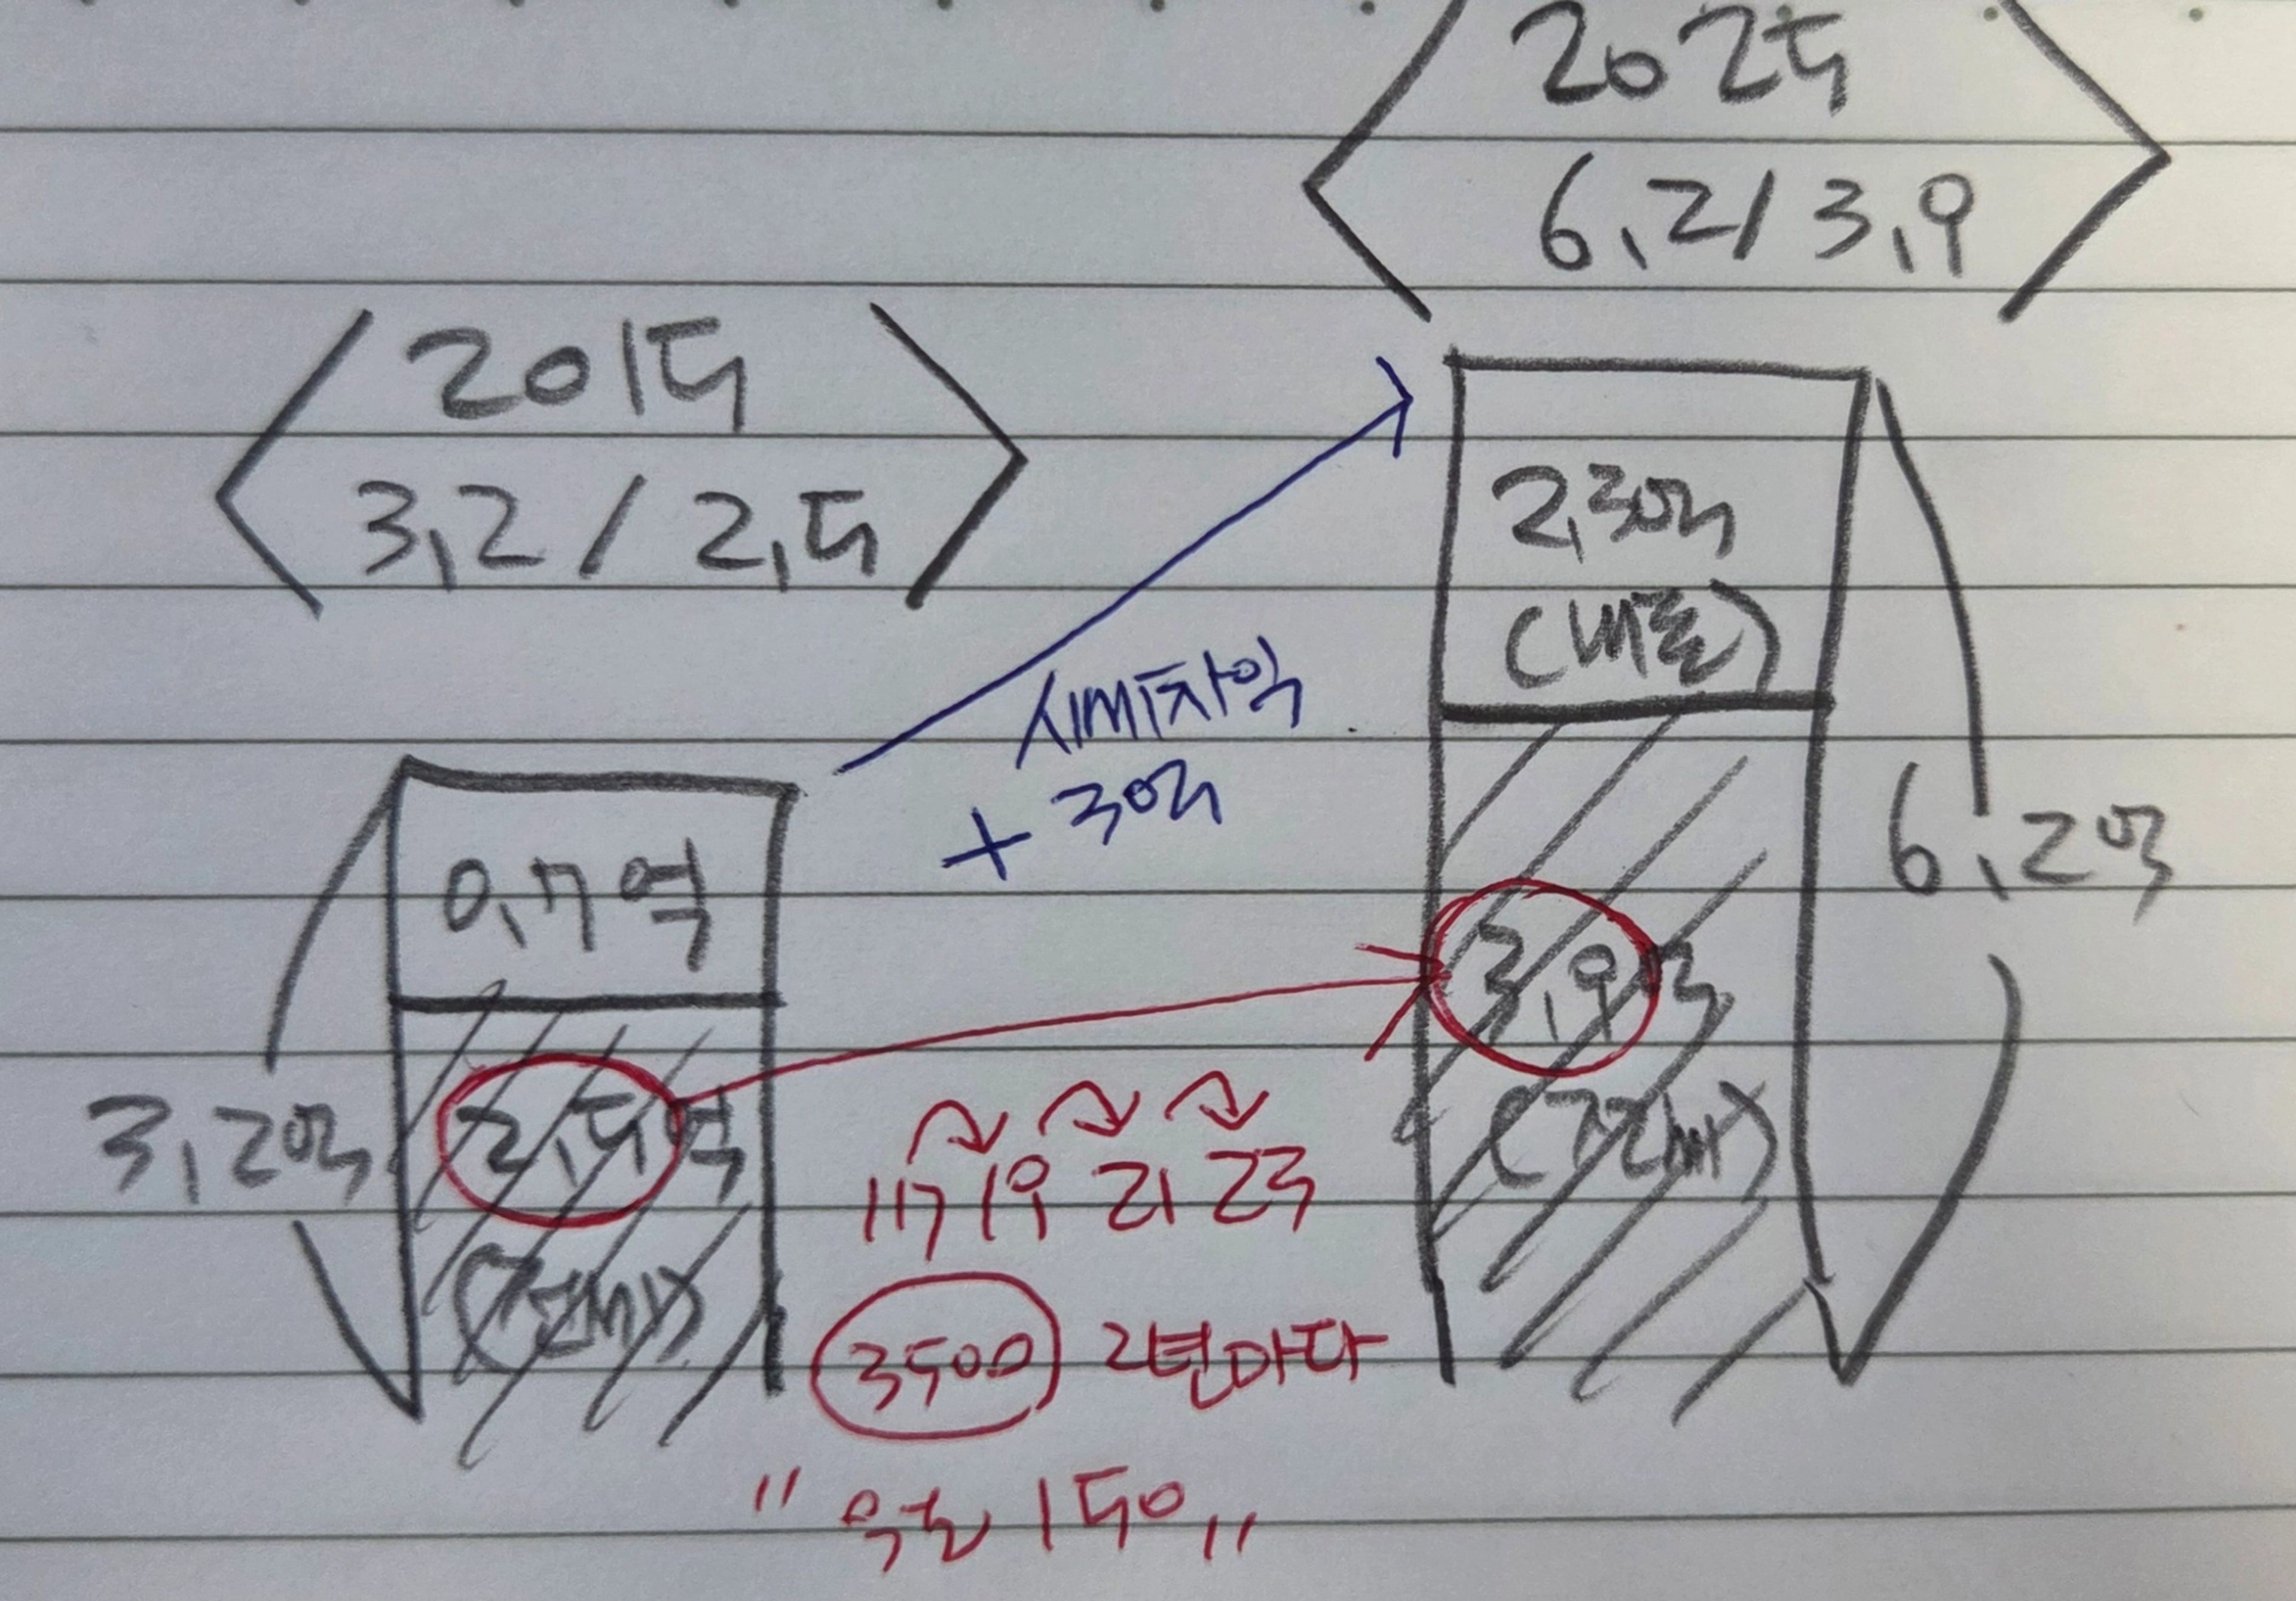 2025
6.2/3.9
2015
3.2/2.5
2.3억
(대출)
시세차익
+3억
6.2억
0.7억
3.9억
(전세)
3.2억
2.5억
(전세)
17 19 21 23
3500 2년마다
"월 150"